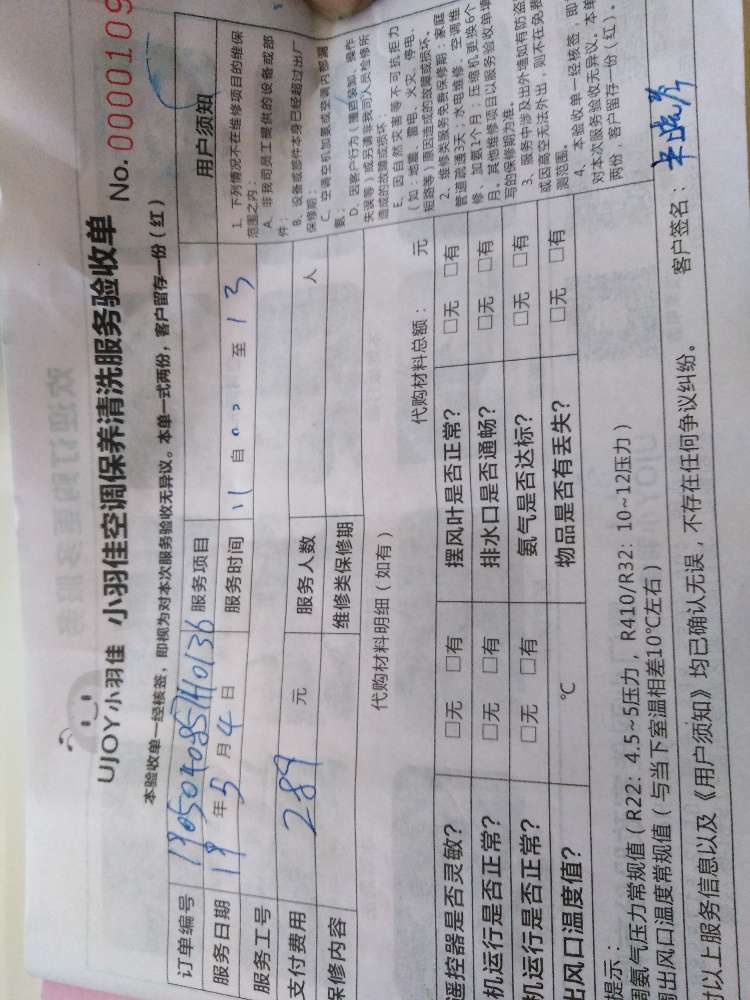 UJOY小羽佳 小羽佳空调保养清洗服务验收单 No. 0000109
本验收单一经核签，即视为对本次服务验收无异议。本单一式两份，客户留存一份（红）
订单编号 服务项目
服务日期 19 年 5 月 4 日 服务时间 自 至 13
服务工号
支付费用 289 元 服务人数 人
保修内容 维修类保修期
代购材料明细（如有） 代购材料总额： 元
遥控器是否灵敏？ □无 □有 摆风叶是否正常？ □无 □有
机运行是否正常？ □无 □有 排水口是否通畅？ □无 □有
机运行是否正常？ □无 □有 氨气是否达标？ □无 □有
出风口温度值？ ℃ 物品是否有丢失？ □无 □有
用户须知
1、下列情况不在维修项目的维保
范围之内：
A、非我司员工提供的设备或部
件；
B、设备或部件本身已经超过出厂
保修期；
C、空调空机加氨或空调内部漏
氨；
D、因客户行为（擅自装卸、操作
失误等）或另请非我司人员检修所
造成的故障或损坏；
E、因自然灾害等不可抗拒力
（如：地震、雷电、火灾、停电、
短路等）原因造成的故障或损坏。
2、维修类服务免费保修期：家庭
管道疏通3天；水电维修、空调维
修、加氨1个月；压缩机更换6个
月。其他维修项目以服务验收单填
写的保修期为准。
3、服务中涉及出外墙如有防盗
或因高空无法外出，则不在免费
测范围。
4、本验收单一经核签，即
对本次服务验收无异议。本单
两份，客户留存一份（红）。
提示：
调氨气压力常规值（R22：4.5~5压力，R410/R32：10~12压力）
周出风口温度常规值（与当下室温相差10℃左右）
以上服务信息以及《用户须知》均已确认无误，不存在任何争议纠纷。 客户签名：